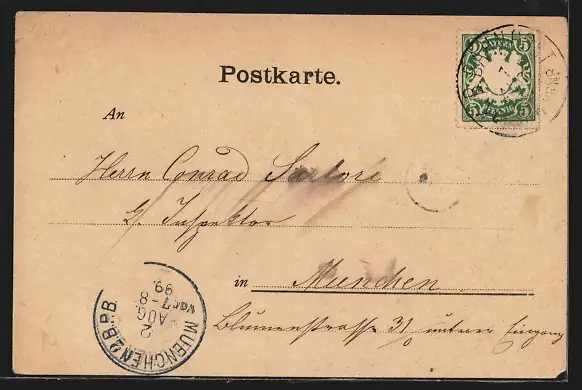 Postkarte.
5 BAYERN 5
An
Herrn Conrad Sartori
Inspektor
in München
Blumenstrasse 31, unterer Eingang
MUENCHEN 2 B.P.B.
2
AUG.
Vor 7-8
99